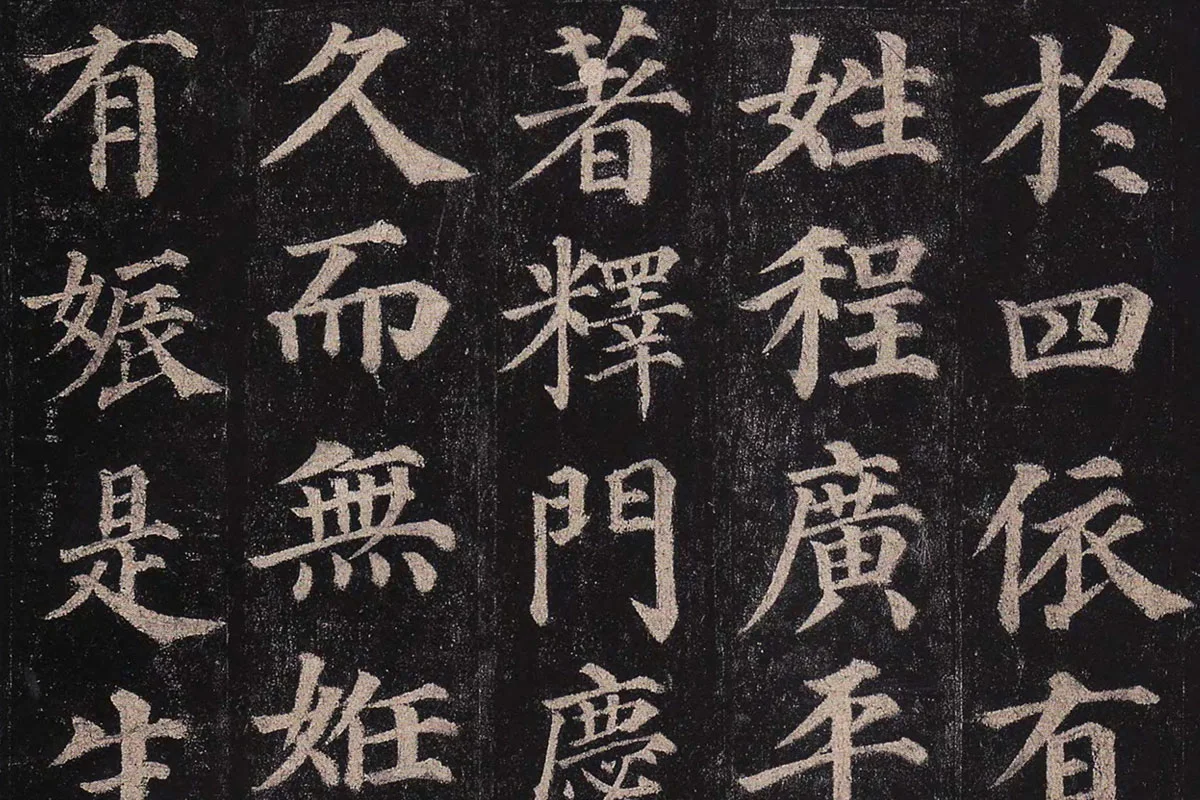 於四依有
姓程廣平
著釋門慶
久而無姙
有娠是生